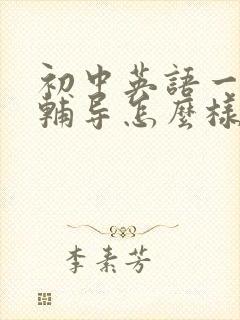 初中英語一
輔导怎麼樣
李素芳